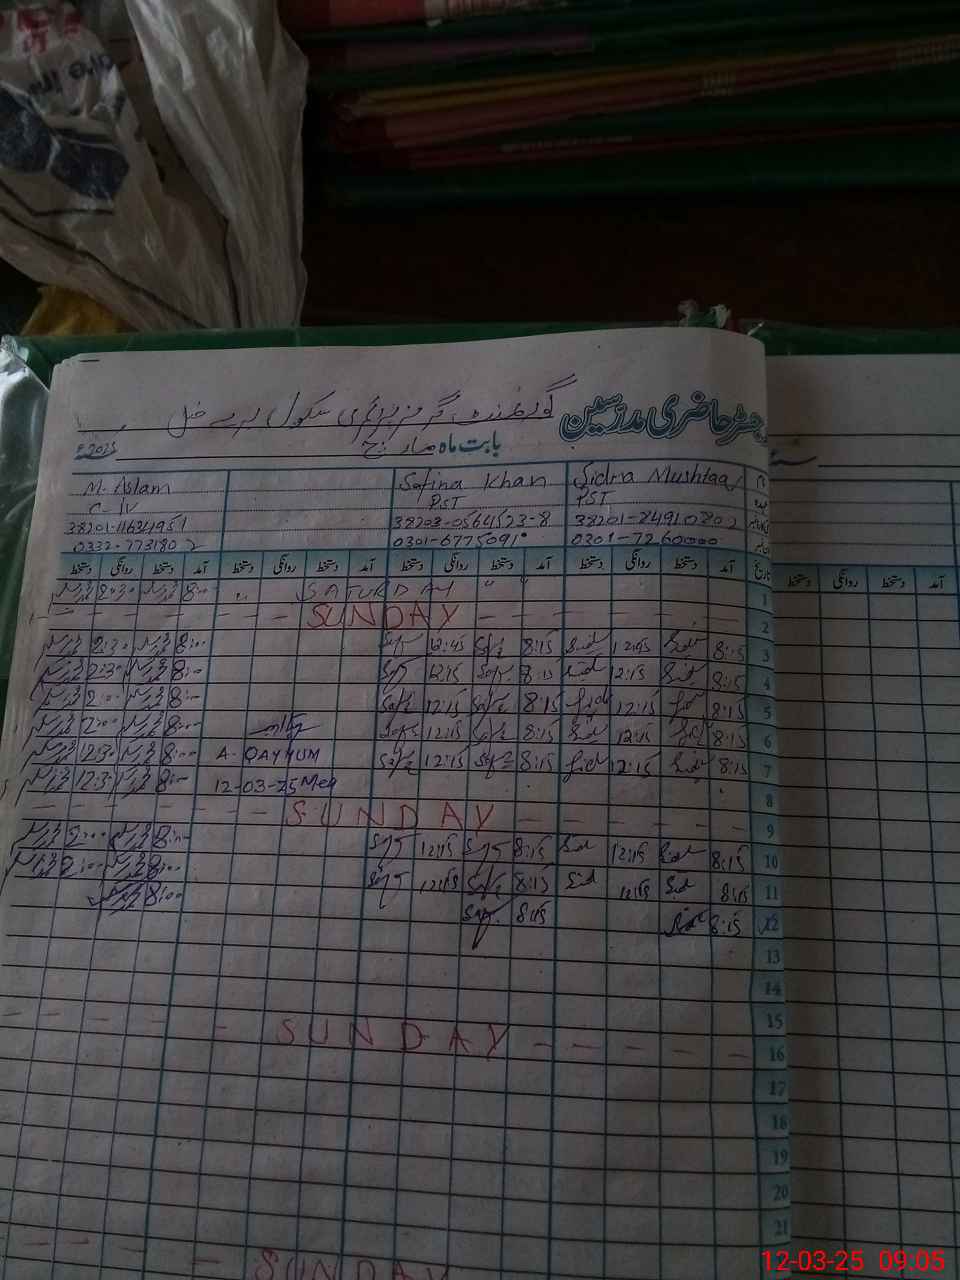 رجسٹر حاضری مدرسین گورنمنٹ گرلز پرائمری سکول
بابت ماہ مارچ 2025ء
Sidra Mushtaq Safina Khan M. Aslam
PST PST C-IV
38201-8491080-2 38203-0564523-8 38201-1163495-1
0301-7260000 0301-6775091 0332-7731802
تاریخ آمد دستخط روانگی دستخط آمد دستخط روانگی دستخط آمد دستخط روانگی دستخط آمد دستخط روانگی دستخط
1 SATURDAY 8:00 2:30
2 SUNDAY
3 8:15 Sid 12:45 Sid 8:15 Saf 12:45 Saf 8:00 2:30
4 8:15 Sid 12:15 Sid 8:15 Saf 12:15 Saf 8:00 2:30
5 8:15 Sid 12:15 Sid 8:15 Saf 12:15 Saf 8:00 2:00
6 8:15 Sid 12:15 Sid 8:15 Saf 12:15 Saf 8:00 2:00
7 8:15 Sid 12:15 Sid 8:15 Saf 12:15 Saf A. QAYYUM 8:00 12:30
8 12-03-25 8:00 12:30
9 SUNDAY
10 8:15 Sid 12:15 Sid 8:15 Saf 12:15 Saf 8:00 2:00
11 8:15 Sid 12:15 Sid 8:15 Saf 12:15 Saf 8:00 2:00
12 8:15 Sid 8:15 Saf 8:00
13
14
15
16 SUNDAY
17
18
19
20
21
SUNDAY
آمد دستخط روانگی دستخط
12-03-25 09:05